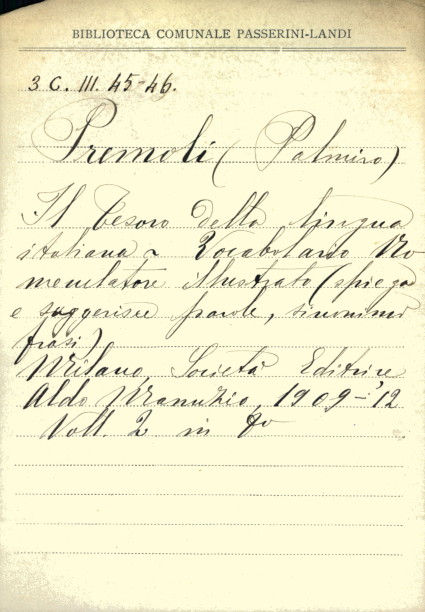 BIBLIOTECA COMUNALE PASSERINI-LANDI
3 C. III. 45-46.
Premoli (Palmiro)
Il tesoro della lingua
italiana - Vocabolario No
menclatore illustrato (spiega
e suggerisce parole, sinonimi
frasi)
Milano, Società Editrice
Aldo Manuzio, 1909-'12
Voll. 2 in